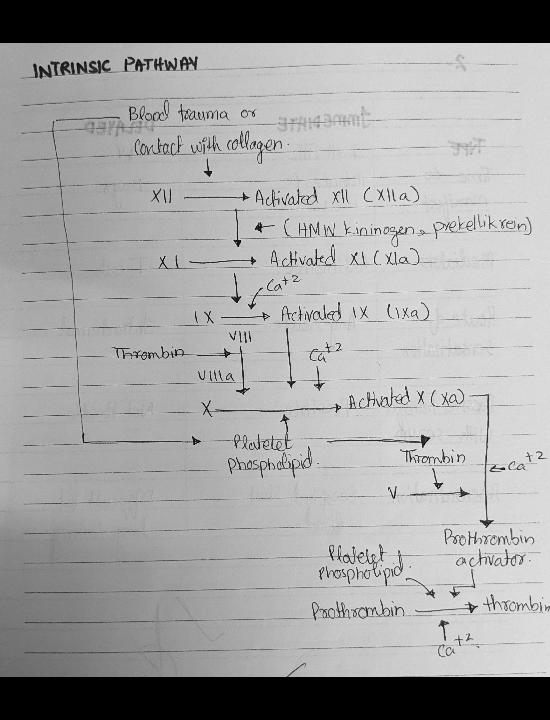 INTRINSIC PATHWAY
Blood trauma or
Contact with collagen.
XII Activated XII (XIIa)
(HMW kininogen, prekellikrein)
XI Activated XI (XIa)
Ca+2
IX Activated IX (IXa)
VIII
Thrombin
Ca+2
VIIIa
X Activated X (Xa)
Platelet
phospholipid.
Thrombin
Ca+2
V
Prothrombin
activator.
Platelet
Phospholipid.
Prothrombin thrombin
Ca+2